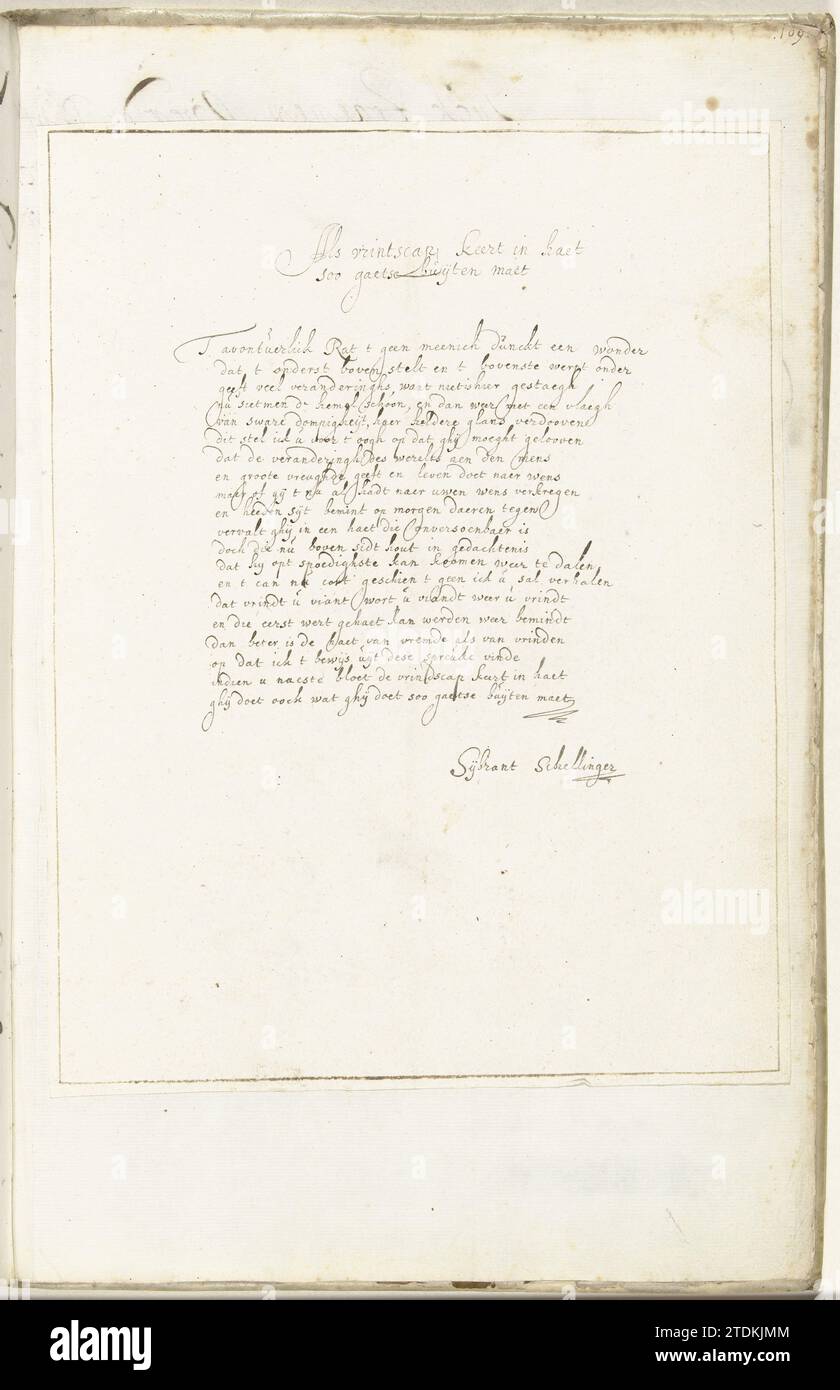 109
Als vrintscap keert in haet
soo gaetse buÿten maet
T avontuerlick Rat t geen meenich dunckt een wonder
dat t onderst boven stelt en t bovenste werpt onder
geeft veel veranderinghs, want niet is hier gestaegh
nu sietmen de hemel schoon, en dan weer met een vlaegh
van sware dompigheÿt, haer heldere glans verdooven
dit stel ick u voor t oogh op dat ghij moeght gelooven
dat de veranderingh des werelts aen den mens
en groote vreughde geeft en leven doet naer wens
maer of gij t nu al hadt naer uwen wens verkregen
en heeden sijt bemint op morgen daeren tegen
vervalt ghij in een haet die onversoenbaer is
doch die nu boven sidt hout in gedachtenis
dat hij opt spoedighste kan koomen weer te dalen
en t can na cort geschien t geen ick u sal verhalen
dat vrindt u viant wort u viandt weer u vrindt
en die eerst wert gehaet kan werden weer bemindt
dan beter is de haet van vremde als van vrinden
op dat ick t bewijs uÿt dese spreuke vinde
indien u naeste bloet de vrindscap keert in haet
ghij doet oock wat ghij doet soo gaetse buÿten maet
Sÿbrant Schellinger
alamy
alamy
alamy
Image ID: 2TDKJMM
www.alamy.com